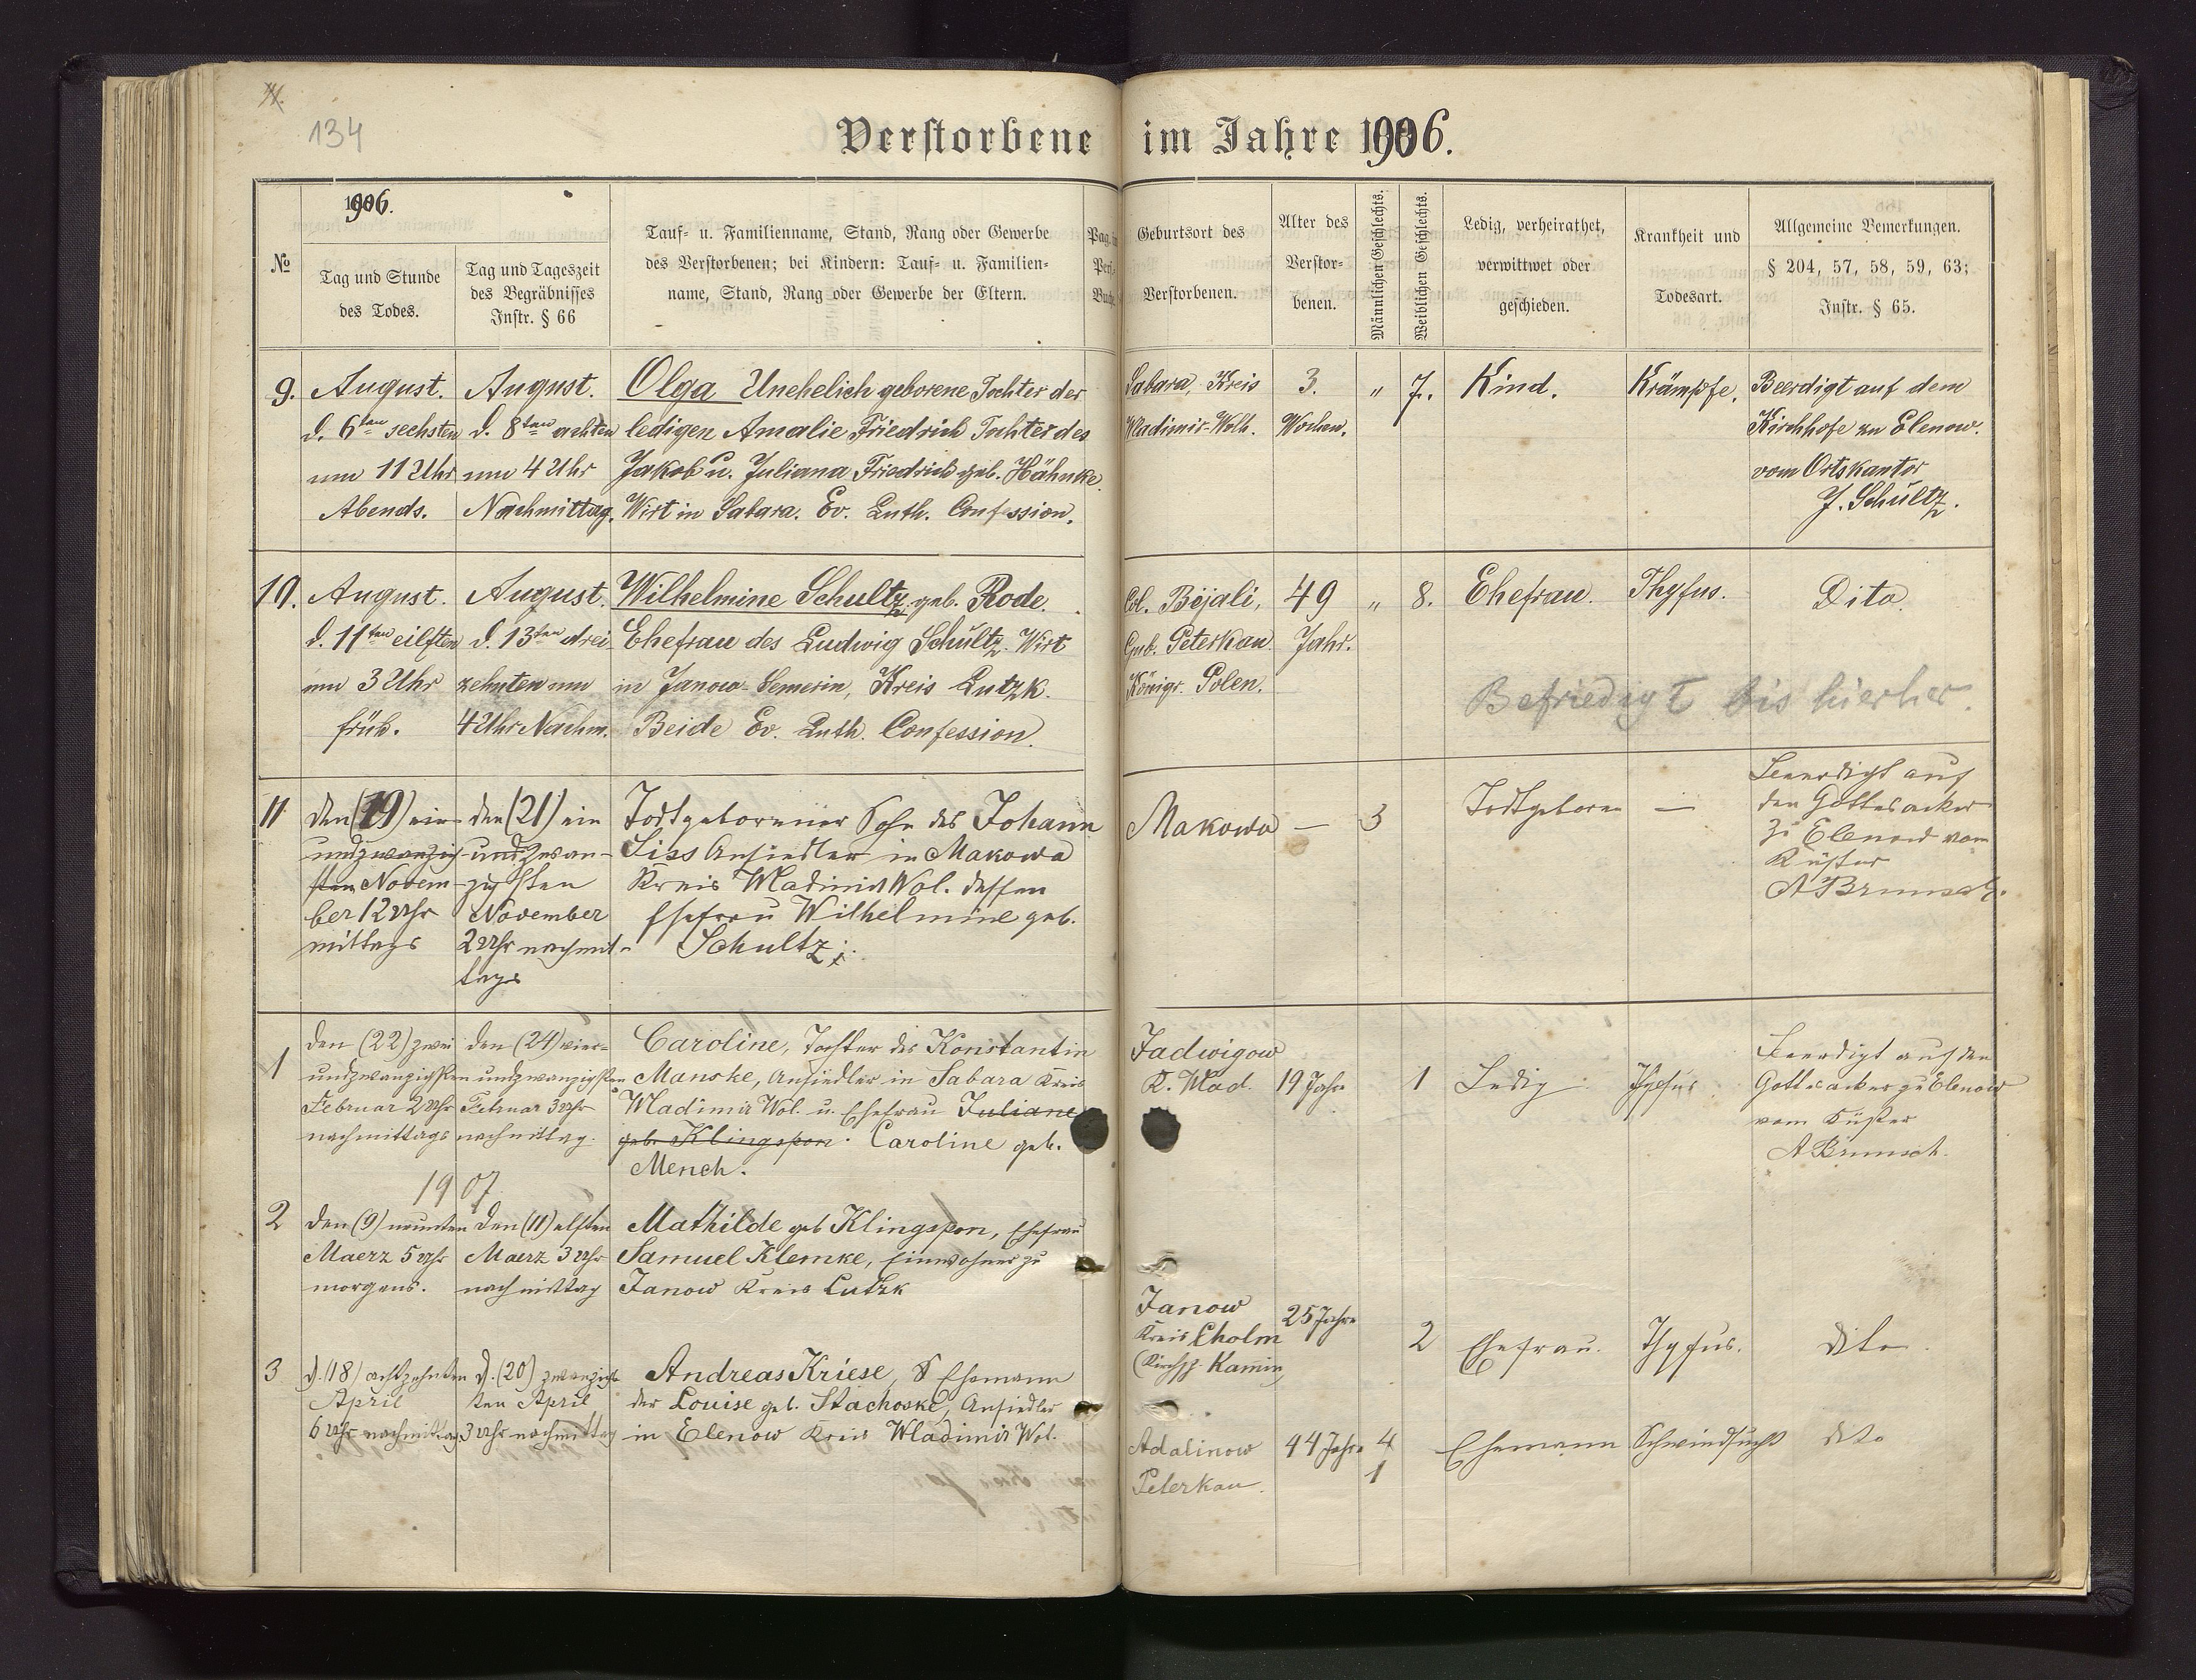 134
Verstorbene im Jahre 1906.
1906.
№
Tag und Stunde
des Todes.
Tag und Tageszeit
des Begräbnisses
Instr. § 66
Tauf- u. Familienname, Stand, Rang oder Gewerbe
des Verstorbenen; bei Kindern: Tauf- u. Familien-
name, Stand, Rang oder Gewerbe der Eltern.
Geburtsort des
Verstorbenen.
Alter des
Verstor-
benen.
Männlichen Geschlechts.
Weiblichen Geschlechts.
Ledig, verheirathet,
verwittwet oder
geschieden.
Krankheit und
Todesart.
Allgemeine Bemerkungen.
§ 204, 57, 58, 59, 63;
Instr. § 65.
9.
August.
d. 6ten sechsten
um 11 Uhr
Abends.
August.
d. 8ten achten
um 4 Uhr
Nachmittag.
Olga Unehelich geborene Tochter der
ledigen Amalie Friedrich Tochter des
Jakob u. Juliana Friedrich geb. Hähnke.
Wirt in Sabara. Ev. Luth. Confession.
Sabara, Kreis
Wladimir-Wolh.
3.
Wochen.
"
7.
Kind.
Krämpfe.
Beerdigt auf dem
Kirchhofe zu Elenow.
vom Ortskantor
J. Schultz.
10.
August.
d. 11ten eilften
um 3 Uhr
früh.
August.
d. 13ten drei-
zehnten um
4 Uhr Nachm.
Wilhelmine Schultz geb. Rode.
Ehefrau des Ludwig Schultz. Wirt
in Janow-Semerin, Kreis Lutzk.
Beide Ev. Luth. Confession.
Col. Bijali,
Gub. Peterkau
Königr. Polen.
49
Jahr.
"
8.
Ehefrau.
Thyfus.
Dito.
Befriedigt bis hierher.
11
den (19) ein-
undzwanzig-
sten Novem-
ber 12 Uhr
mittags
den (21) ein
und zwan-
zigsten
November
2 Uhr nachmit-
tags
Todtgeborener Sohn des Johann
Liss Ansiedler in Makowa
Kreis Wladimir Wol. dessen
Ehefrau Wilhelmine geb.
Schultz;
Makowa
—
3
Todtgeboren
—
Beerdigt auf
den Gottesacker
zu Elenow vom
Küster
A Brunsch.
1
den (22) zwei
undzwanzigsten
Februar 2 Uhr
nachmittags
den (24) vier-
undzwanzigsten
Februar 3 Uhr
nachmittag.
Caroline, Tochter des Konstantin
Manske, Ansiedler in Sabara Kreis
Wladimir Wol. u. Ehefrau Juliane
geb. Klingspon. Caroline geb.
Mench.
Jadwigow
K. Wlad.
19 Jahr
1
Ledig
Thyfus
Beerdigt auf den
Gottesacker zu Elenow
vom Küster
A Brunsch.
1907
2
den (9) neunten
Maerz 5 Uhr
morgens.
den (11) elften
Maerz 3 Uhr
nachmittag
Mathilde geb Klingspon, Ehefrau
Samuel Klemke, Einwohner zu
Janow Kreis Lutzk
Janow
Kreis Cholm
(Kirchsp. Kamin)
25 Jahre
2
Ehefrau.
Thyfus.
dito.
3
d. (18) achtzehnten
April
6 Uhr nachmittag
d. (20) zwanzigs
ten April
3 Uhr nachmittag
Andreas Kriese, Ehemann
der Louise geb. Stachoske, Ansiedler
in Elenow Kreis Wladimir Wol.
Adalinow
Peterkau.
44 Jahre
4
1
Ehemann
Schwindsucht
dito